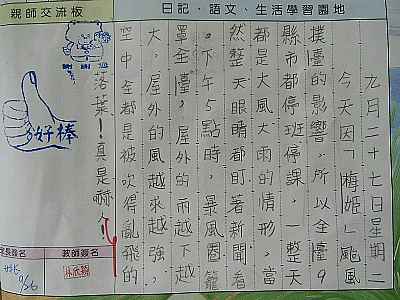 親師交流板
日記、語文、生活學習園地
九月二十七日星期二
今天因「梅姬」颱風
撲臺的影響，所以全臺9
縣市都停班停課，一整天
都是大風大雨的情形，當
然整天眼睛都盯著新聞看
。下午5點時，暴風圈籠
罩全臺，屋外的雨越下越
大，屋外的風越來越強，
空中全都是被吹得亂飛的
落葉！真是嚇人！
好棒
教師簽名
9/26